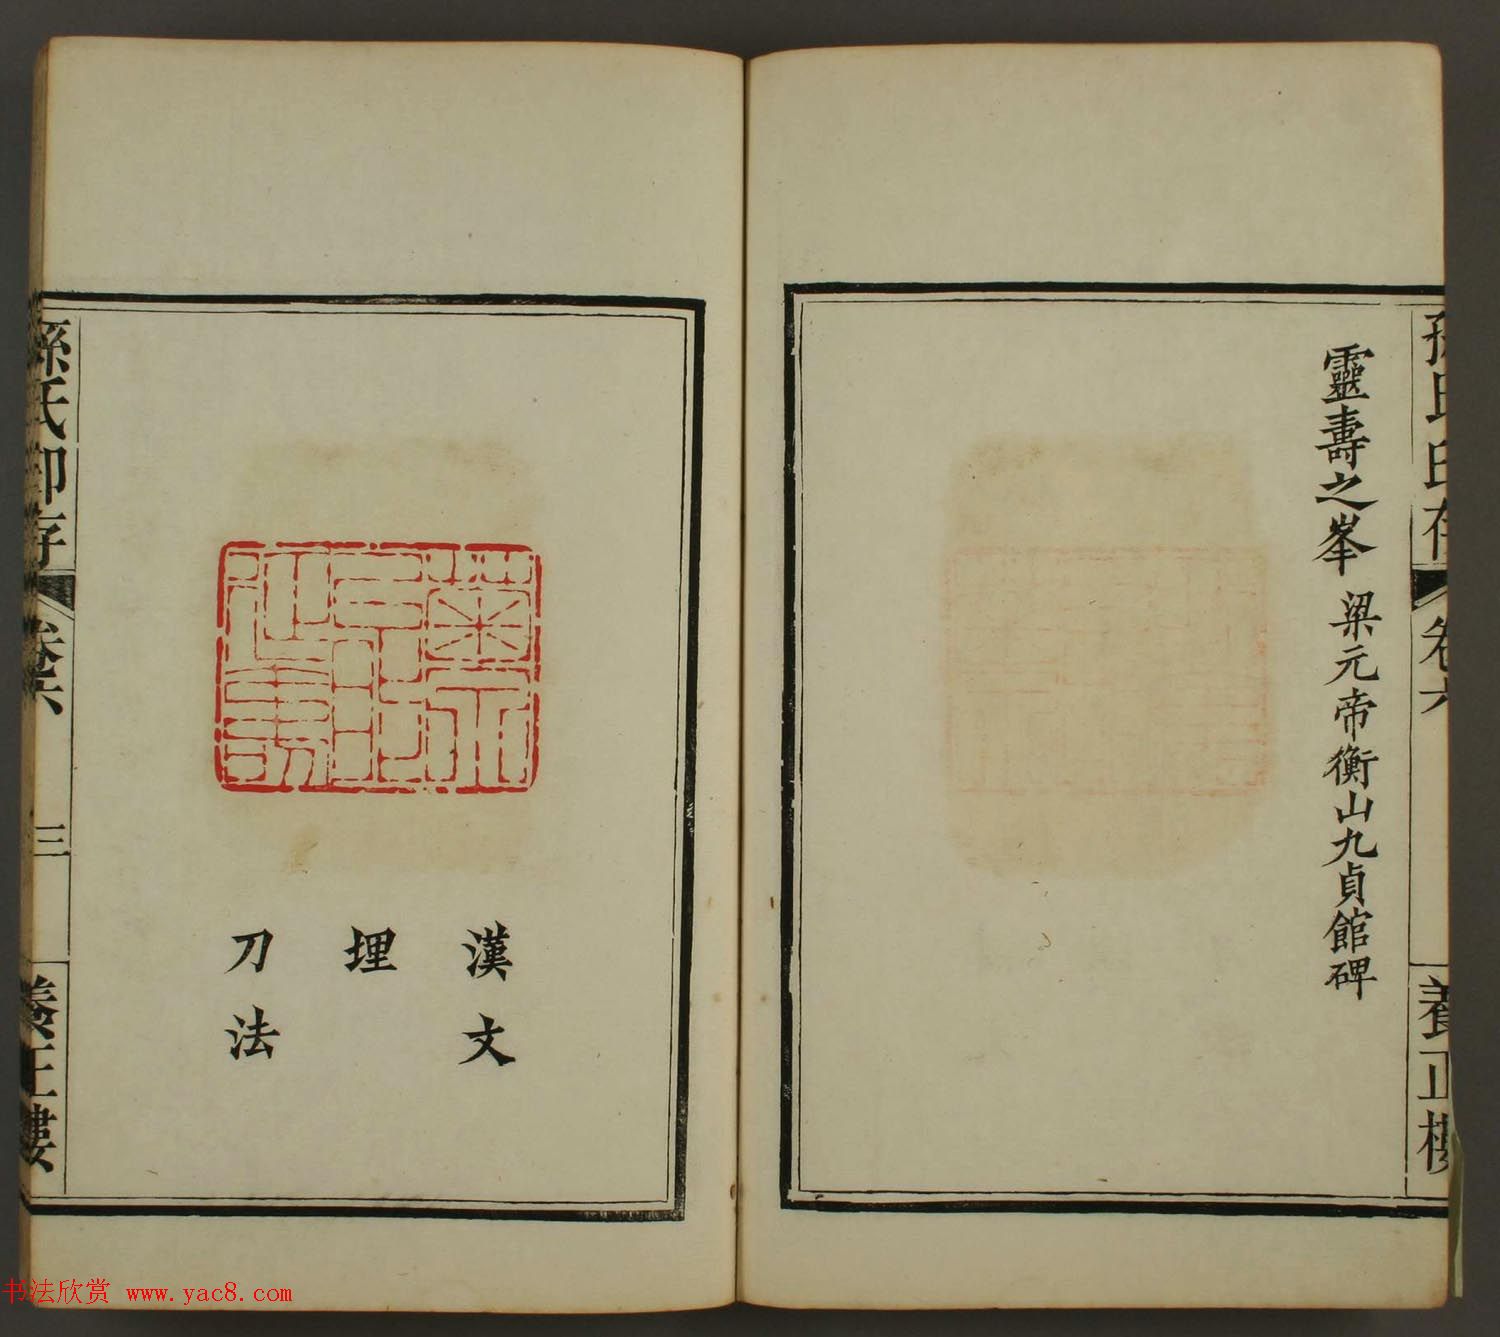 孫氏印存
卷六
養正樓
靈壽之峯 梁元帝衡山九貞館碑
漢文
埋
刀法
孫氏印存
卷六
三
養正樓
书法欣赏 www.yac8.com